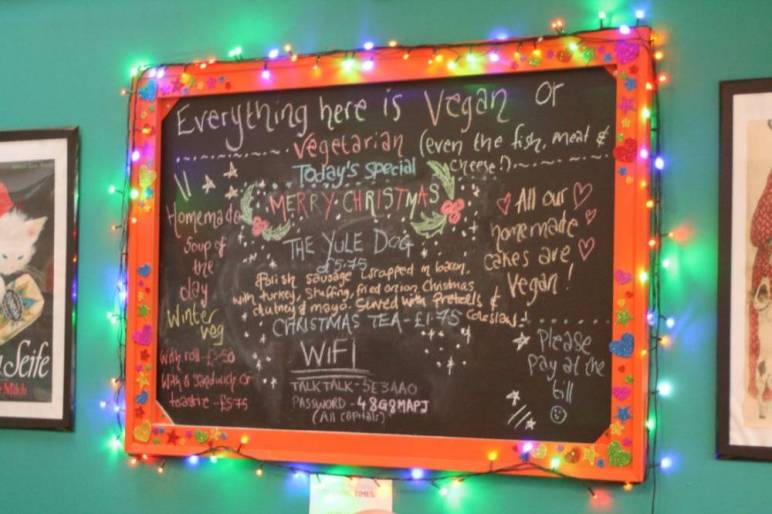 Everything here is Vegan or
Vegetarian (even the fish, meat &
cheese!)
Today's special
MERRY CHRISTMAS
THE YULE DOG
£5.75
Polish sausage wrapped in bacon,
with turkey, stuffing, fried onion, Christmas
chutney & mayo. Served with pretzels &
coleslaw.
CHRISTMAS TEA - £1.75
WIFI
TALKTALK - 5E3AA0
PASSWORD - 48G8MAPJ
(All capitals)
Homemade
Soup of
the
day
Winter
veg
With roll - £3.50
With a sandwich or
toastie - £5.75
All our
homemade
cakes are
Vegan!
Please
Pay at the
till
Seife